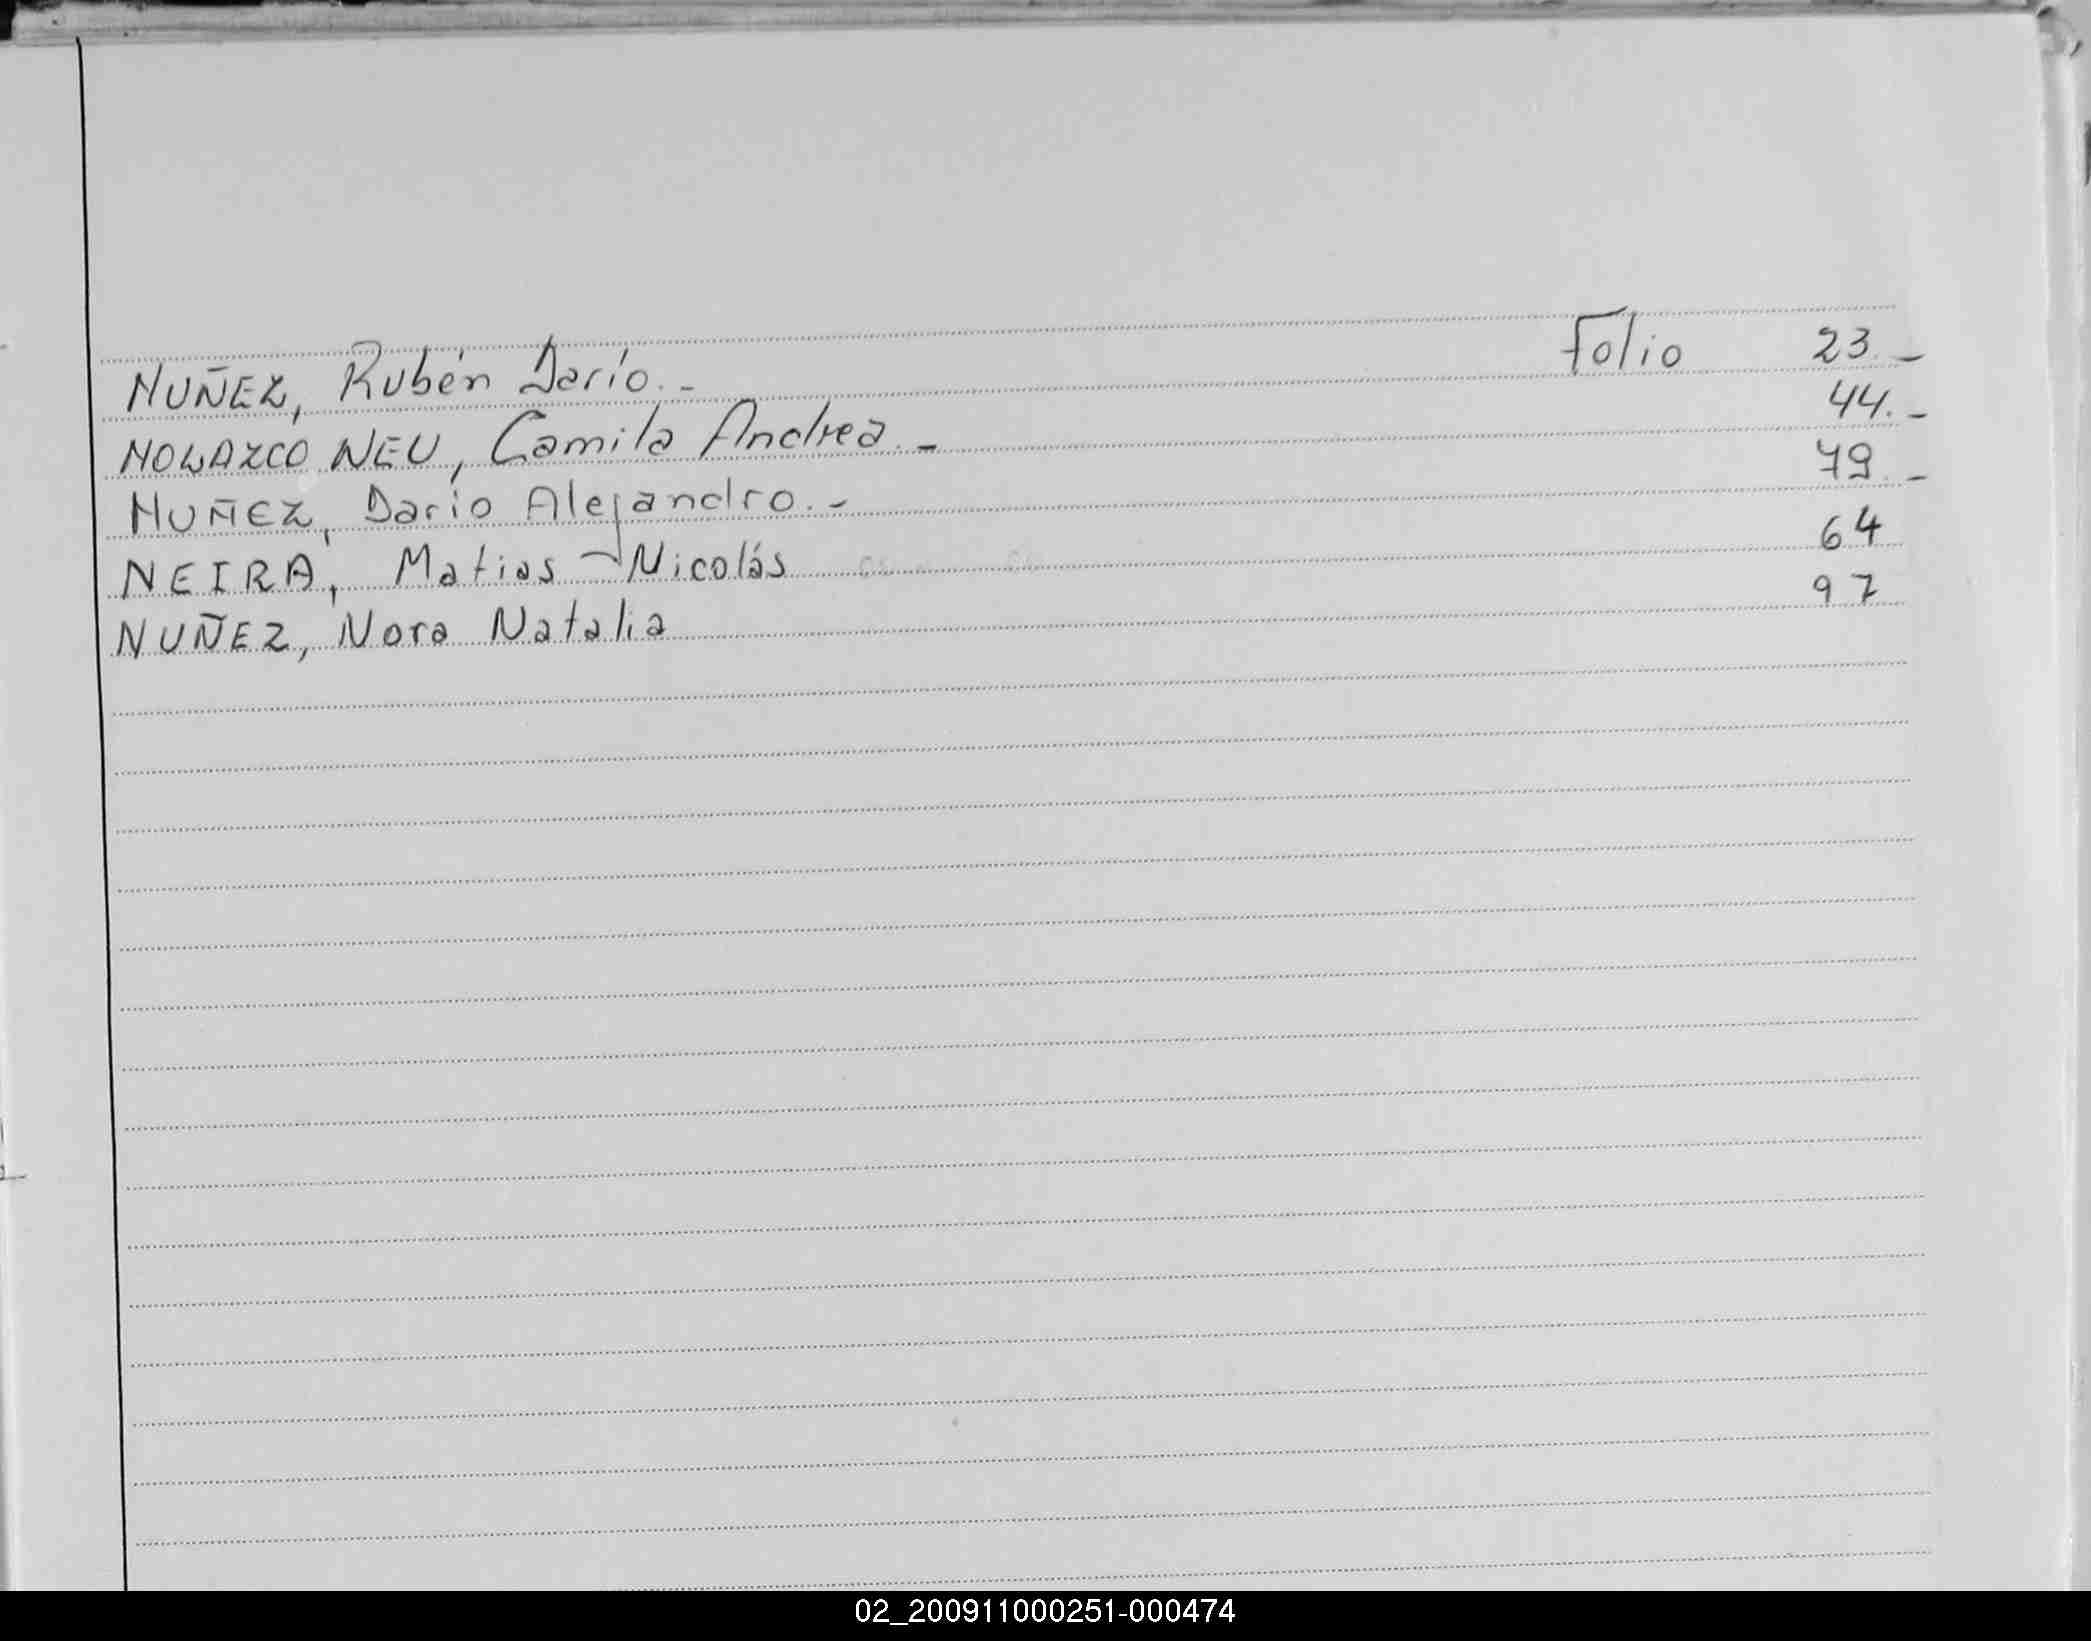 NUÑEZ, Rubén Darío.- Folio 23.-
NOLAZCO NEU, Camila Andrea.- 44.-
NUÑEZ, Dario Alejandro.- 79.-
NEIRA, Matias Nicolás 64
NUÑEZ, Nora Natalia 97
02_200911000251-000474